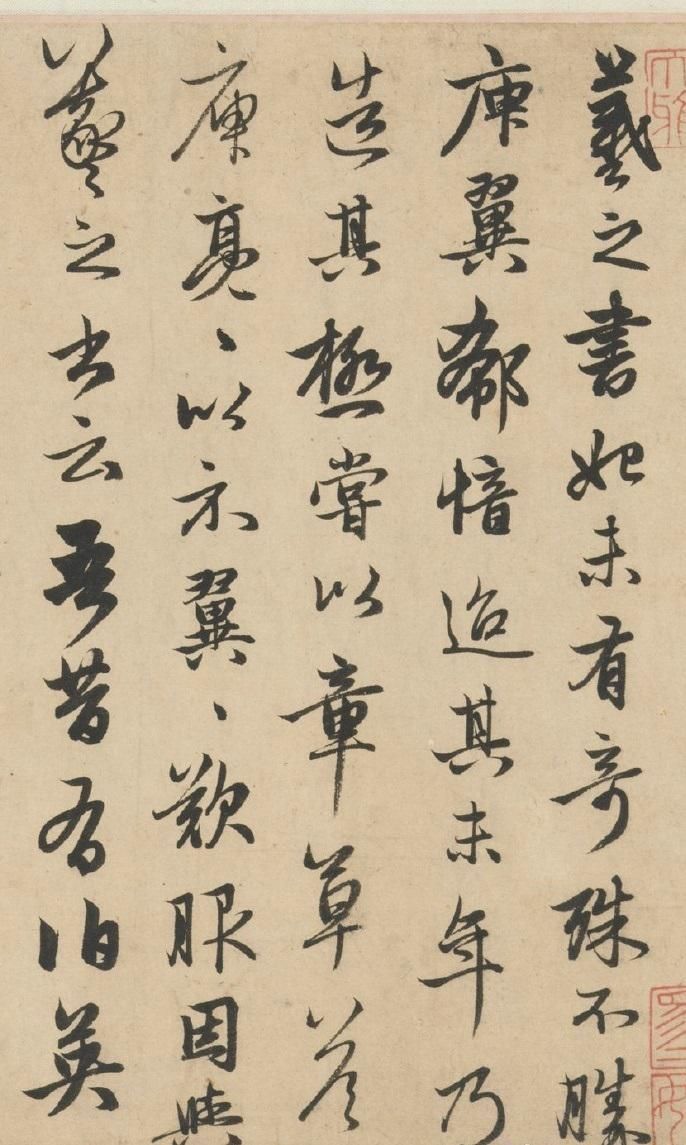 羲之書始未有奇殊不勝
庾翼郗愔迨其末年乃
造其極嘗以章草答
庾亮、以示翼、歎服因與
羲之書云吾昔有伯英